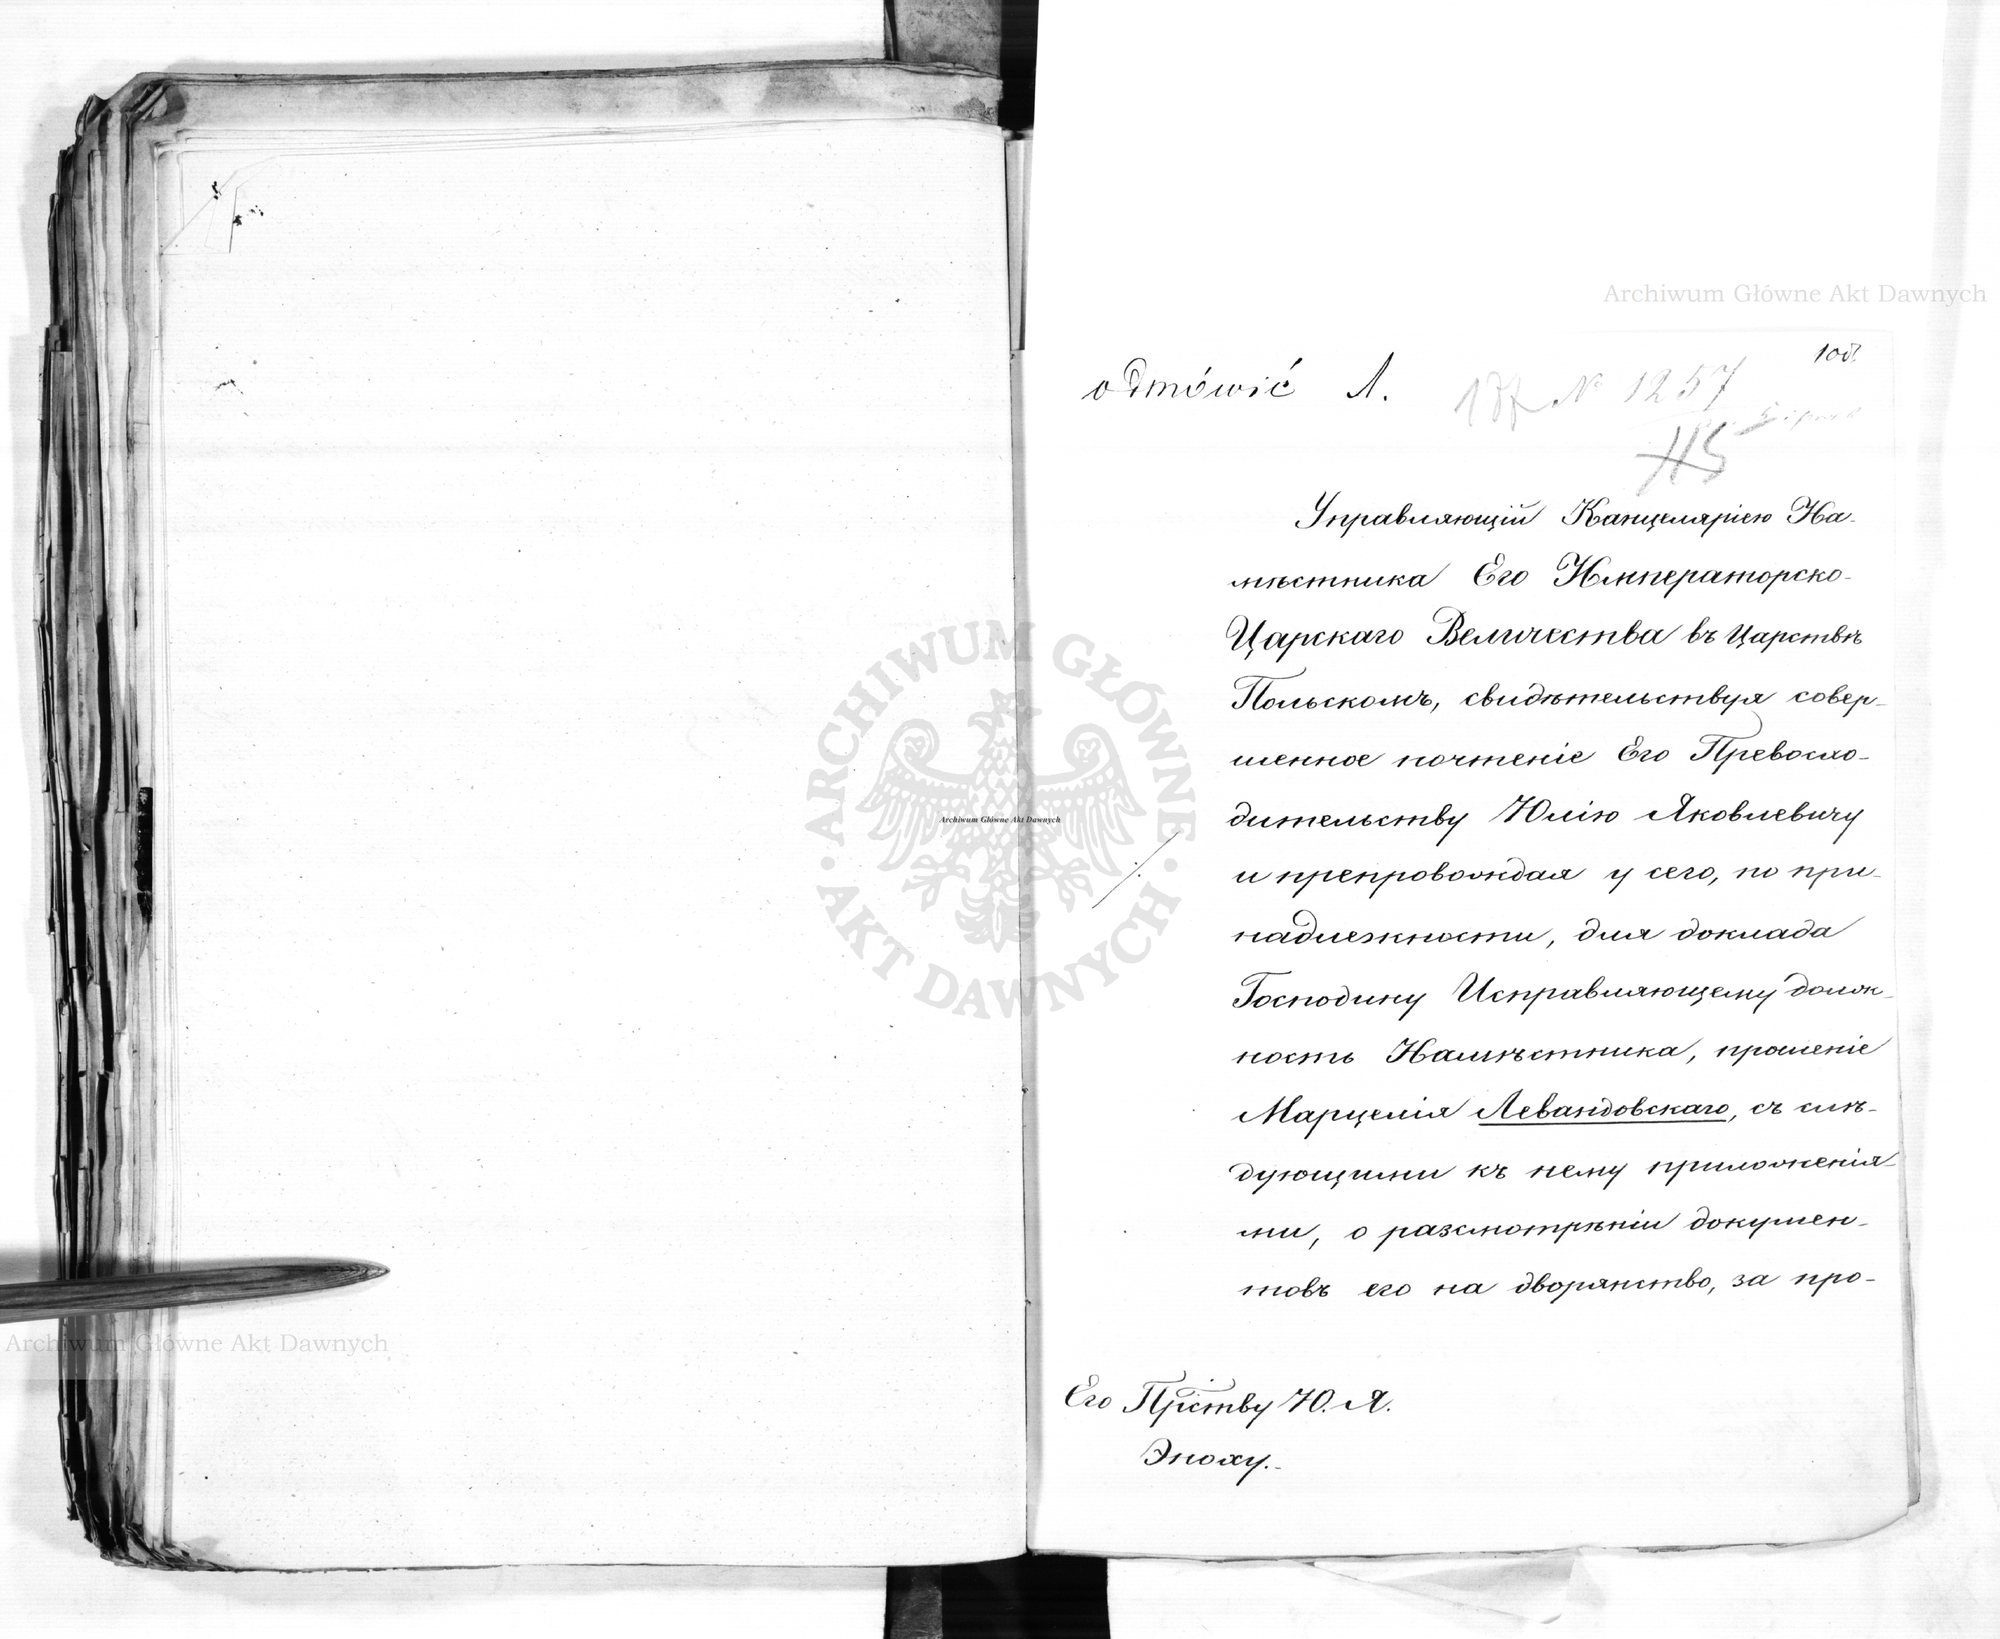 Archiwum Główne Akt Dawnych
odmówić Л.
№ 1257
115
Управляющій Канцеляріею На-
мѣстника Его Императорско-
Царскаго Величества въ Царствѣ
Польскомъ, свидѣтельствуя совер-
шенное почтеніе Его Превосхо-
дительству Юлію Яковлевичу
и препровождая у сего, по при-
надлежности, для доклада
Господину Исправляющему долж-
ность Намѣстника, прошеніе
Марцелія Левандовскаго, съ слѣ-
дующими къ нему приложенія-
ми, о разсмотрѣніи докумен-
товъ его на дворянство, за про-
Его Прiству Ю. Я.
Эноху.
ARCHIWUM GŁÓWNE
AKT DAWNYCH
Archiwum Główne Akt Dawnych
Archiwum Główne Akt Dawnych